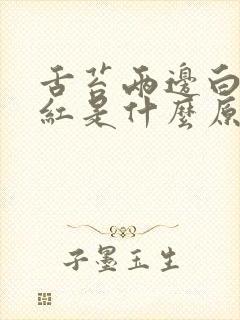 舌苔兩邊白
紅是什麼原
子墨玉生